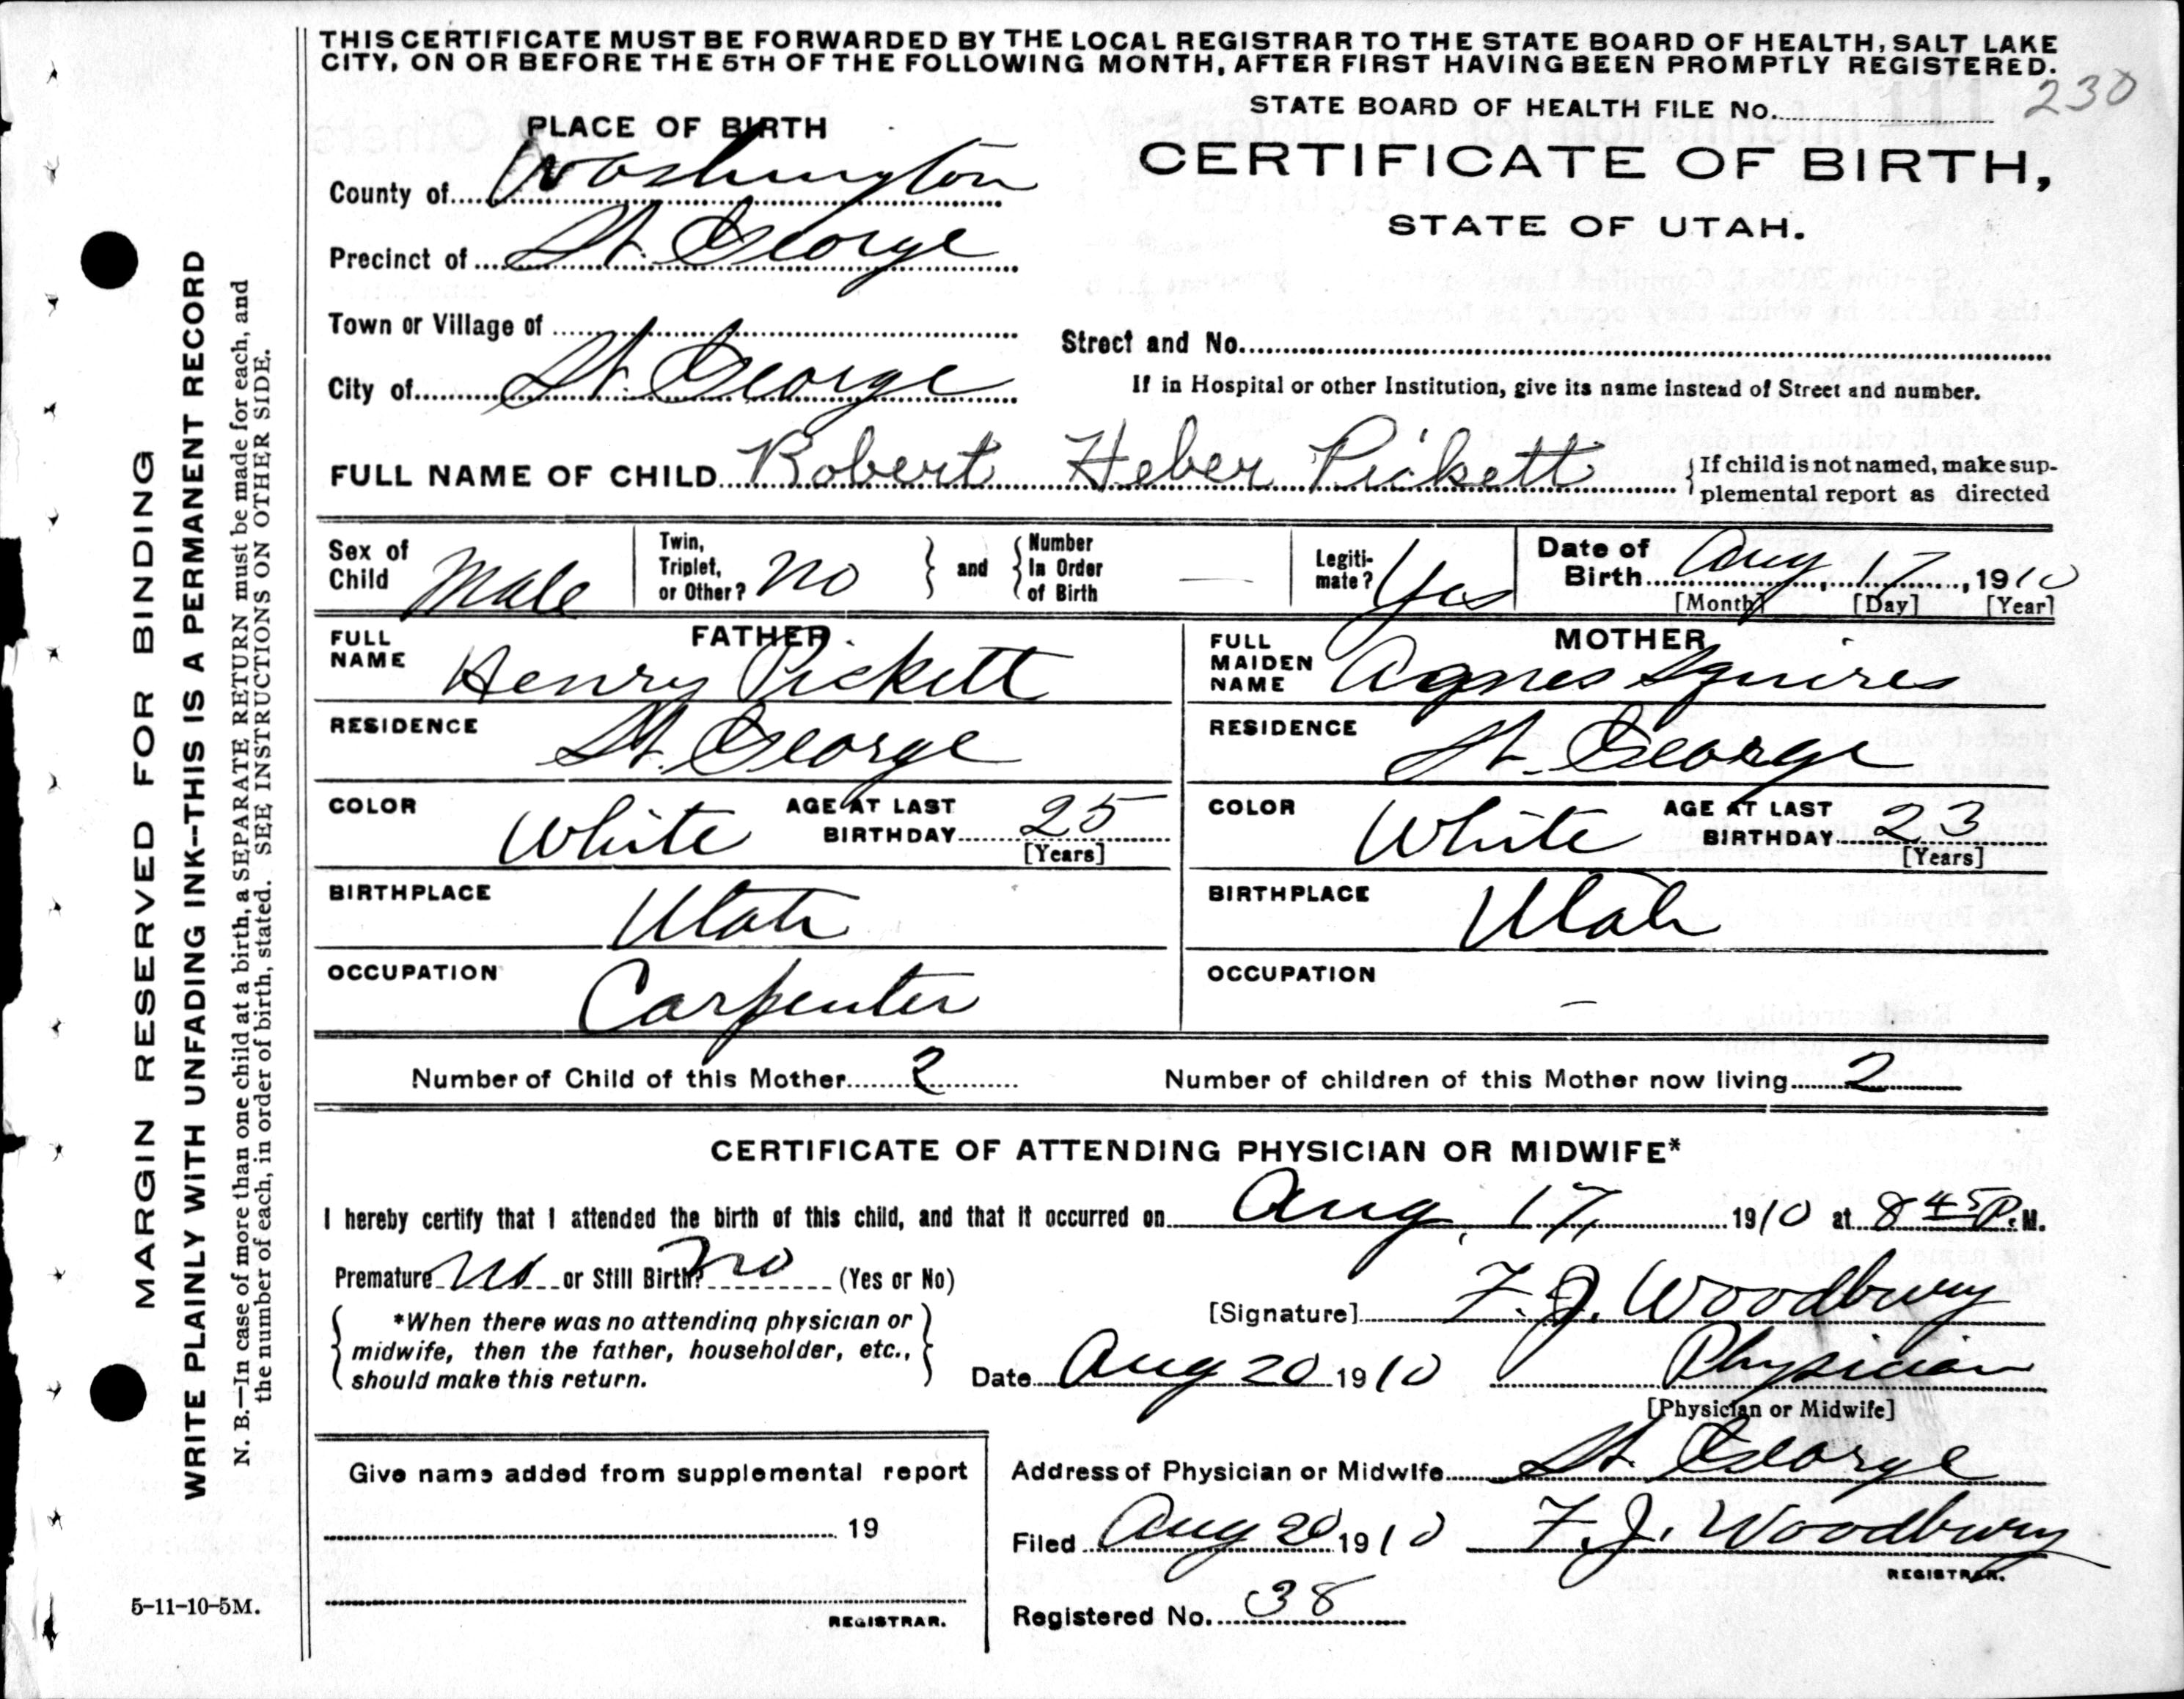 THIS CERTIFICATE MUST BE FORWARDED BY THE LOCAL REGISTRAR TO THE STATE BOARD OF HEALTH, SALT LAKE
CITY, ON OR BEFORE THE 5TH OF THE FOLLOWING MONTH, AFTER FIRST HAVING BEEN PROMPTLY REGISTERED.
STATE BOARD OF HEALTH FILE No. 230
PLACE OF BIRTH
CERTIFICATE OF BIRTH,
STATE OF UTAH.
County of Washington
Precinct of St. George
Town or Village of
Street and No.
City of St. George
If in Hospital or other Institution, give its name instead of Street and number.
FULL NAME OF CHILD Robert Heber Pickett
If child is not named, make sup-
plemental report as directed
Sex of Child Male
Twin, Triplet, or Other? No
and Number In Order of Birth —
Legiti-mate? Yes
Date of Birth Aug, 17, 1910
[Month] [Day] [Year]
FATHER
FULL NAME Henry Pickett
RESIDENCE St. George
COLOR White AGE AT LAST BIRTHDAY 25
[Years]
BIRTHPLACE Utah
OCCUPATION Carpenter
MOTHER
FULL MAIDEN NAME Agnes Squires
RESIDENCE St. George
COLOR White AGE AT LAST BIRTHDAY 23
[Years]
BIRTHPLACE Utah
OCCUPATION –
Number of Child of this Mother 2 Number of children of this Mother now living 2
CERTIFICATE OF ATTENDING PHYSICIAN OR MIDWIFE*
I hereby certify that I attended the birth of this child, and that it occurred on Aug, 17, 1910 at 8 45 P. M.
Premature No or Still Birth? No (Yes or No)
*When there was no attending physician or
midwife, then the father, householder, etc.,
should make this return.
[Signature] F. J. Woodbury
Date Aug 20 1910 Physician
[Physician or Midwife]
Give name added from supplemental report
19
REGISTRAR.
Address of Physician or Midwife St. George
Filed Aug 20 1910 F. J. Woodbury
REGISTRAR.
Registered No. 38
5-11-10-5M.
MARGIN RESERVED FOR BINDING
WRITE PLAINLY WITH UNFADING INK--THIS IS A PERMANENT RECORD
N. B.—In case of more than one child at a birth, a SEPARATE RETURN must be made for each, and
the number of each, in order of birth, stated. SEE INSTRUCTIONS ON OTHER SIDE.